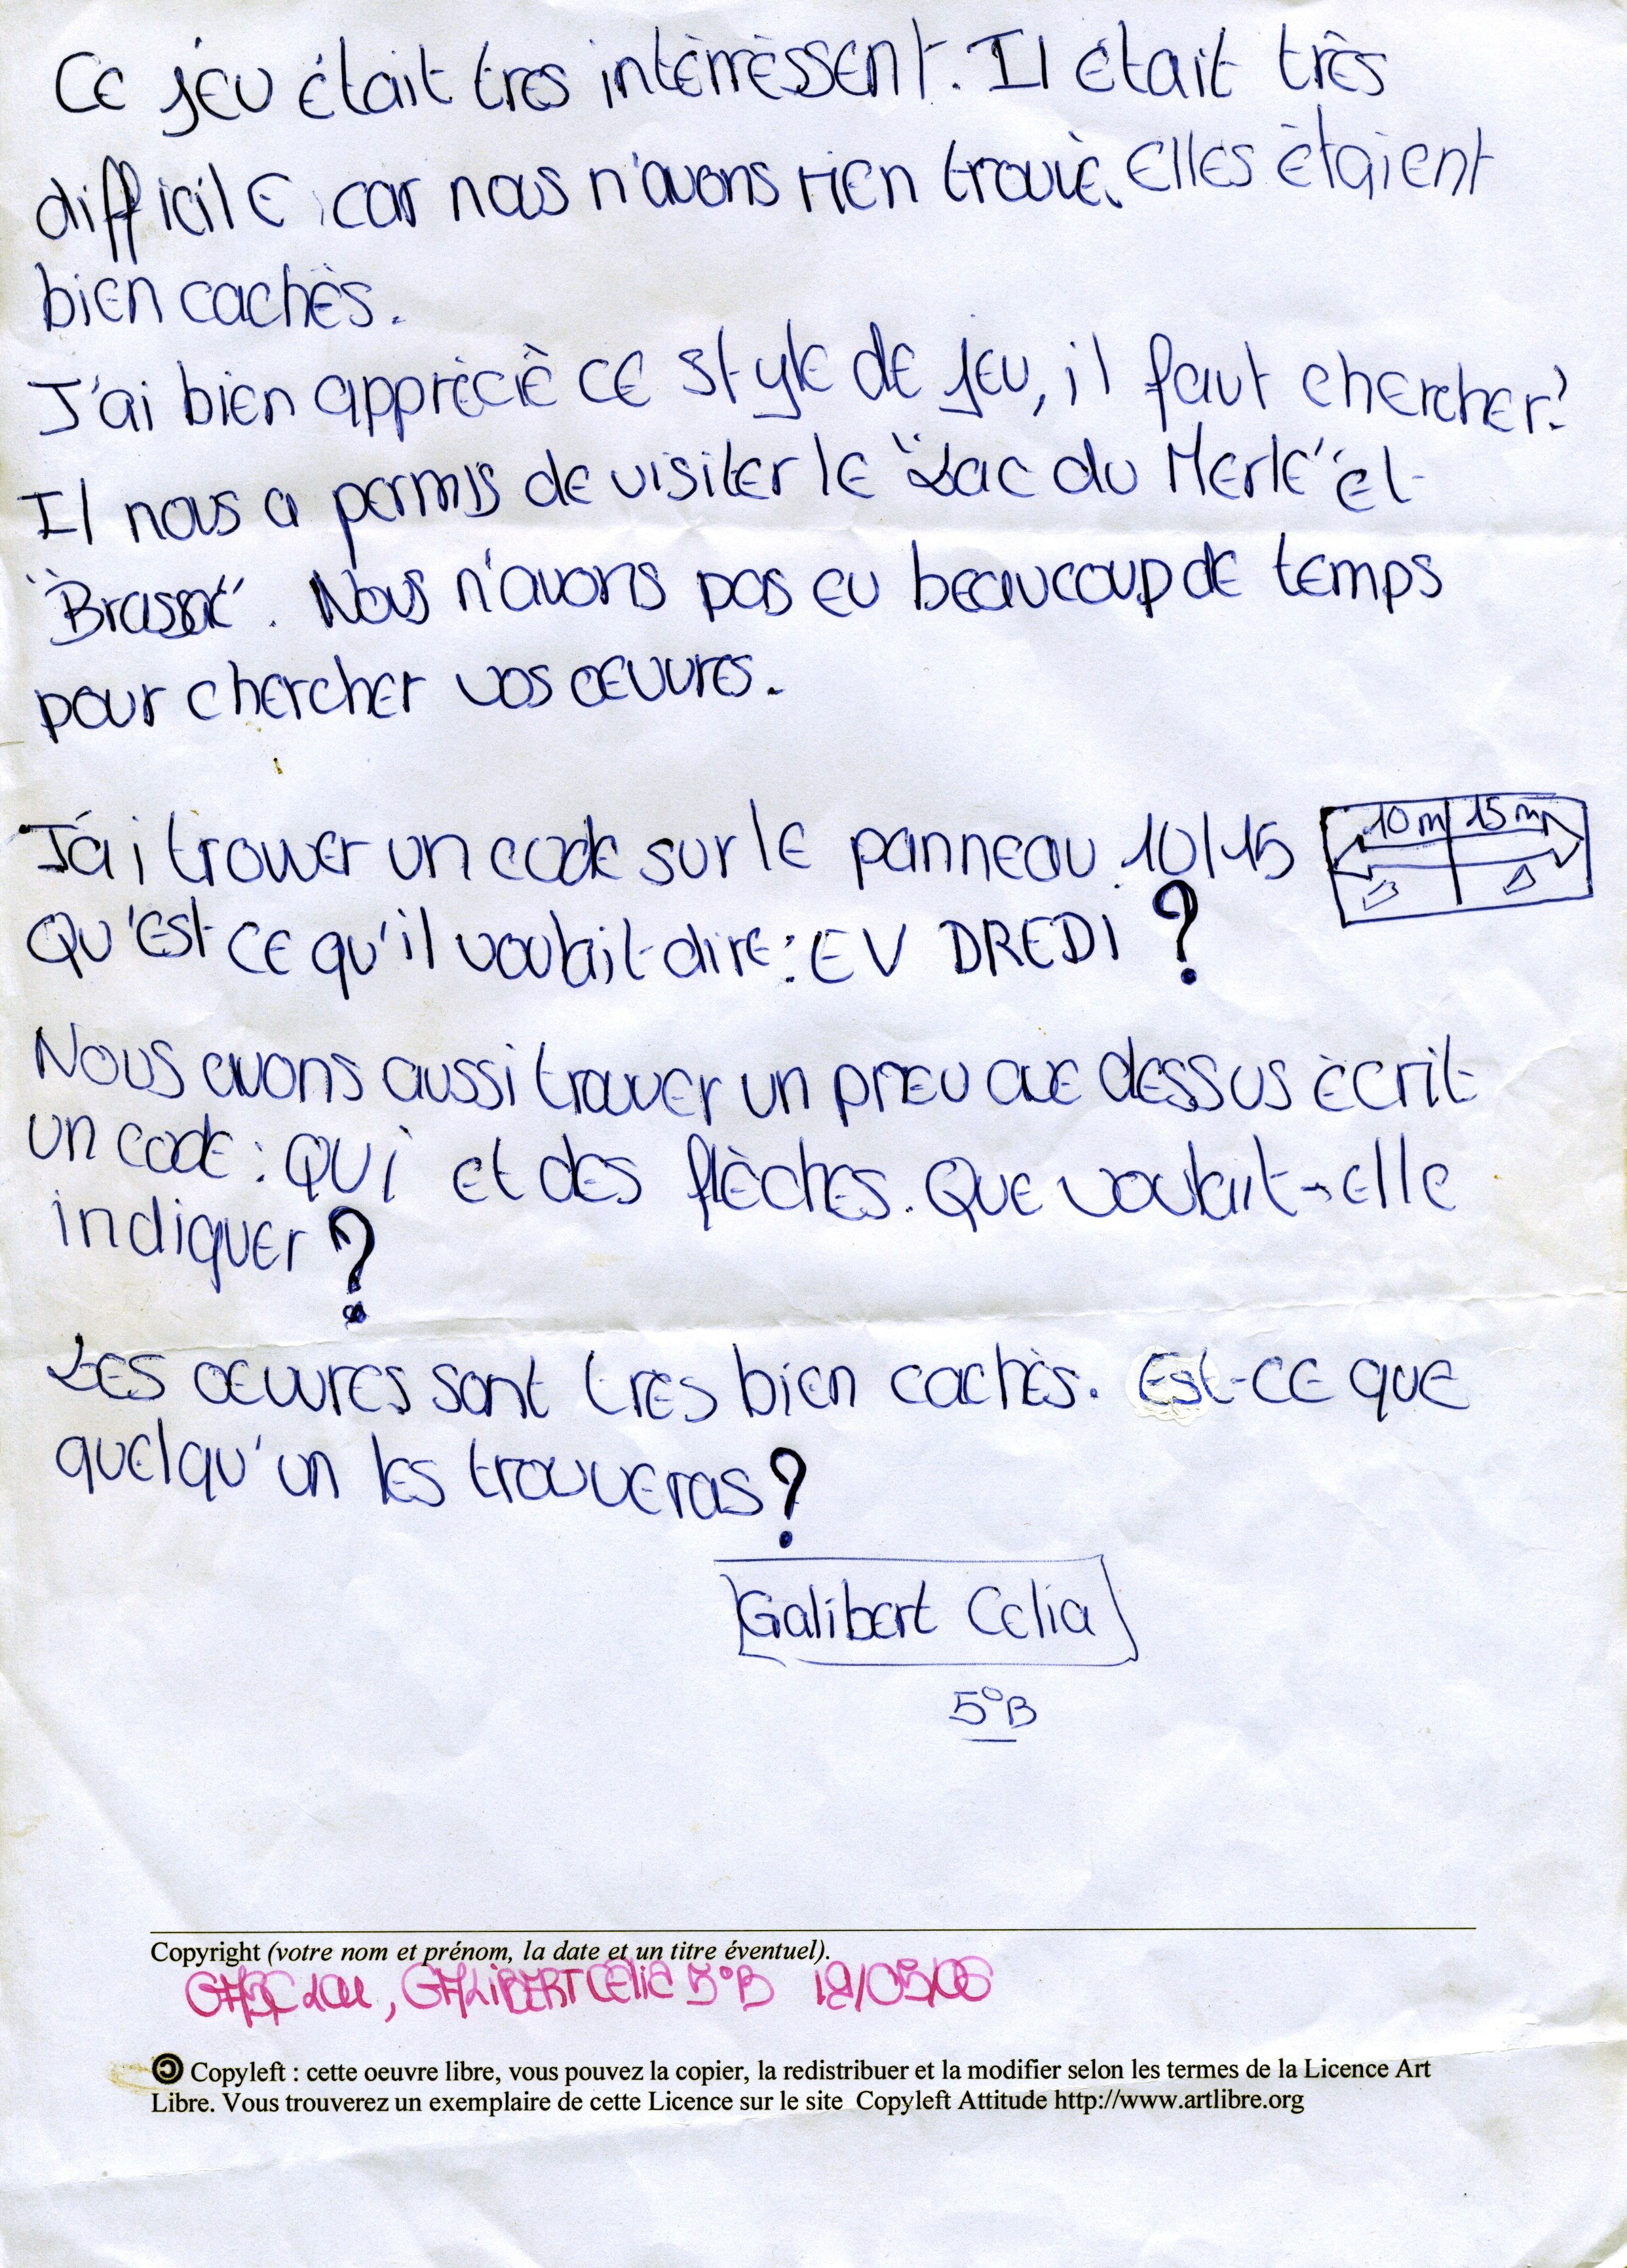 Ce jeu était tres intèrrèssent. Il était très
difficile car nous n'avons rien trouvè. Elles ètaient
bien cachès.
J'ai bien apprèciè ce style de jeu, il faut chercher!
Il nous a permis de visiter le "Lac du Merle" et
"Brassac". Nous n'avons pas eu beaucoup de temps
pour chercher vos œuvres.
J'ai trouver un code sur le panneau. 10/15
10m 15m
Qu'est ce qu'il voulait dire: EV DREDI ?
Nous avons aussi trouver un pneu avec dessus ècrit
un code: QUI et des flèches. Que voulait-elle
indiquer ?
Les œuvres sont tres bien cachès. Est-ce que
quelqu'un les trouveras ?
Galibert Celia
5°B
Copyright (votre nom et prénom, la date et un titre éventuel).
GALIBERT CELIA 5°B
Copyleft : cette oeuvre libre, vous pouvez la copier, la redistribuer et la modifier selon les termes de la Licence Art
Libre. Vous trouverez un exemplaire de cette Licence sur le site Copyleft Attitude http://www.artlibre.org